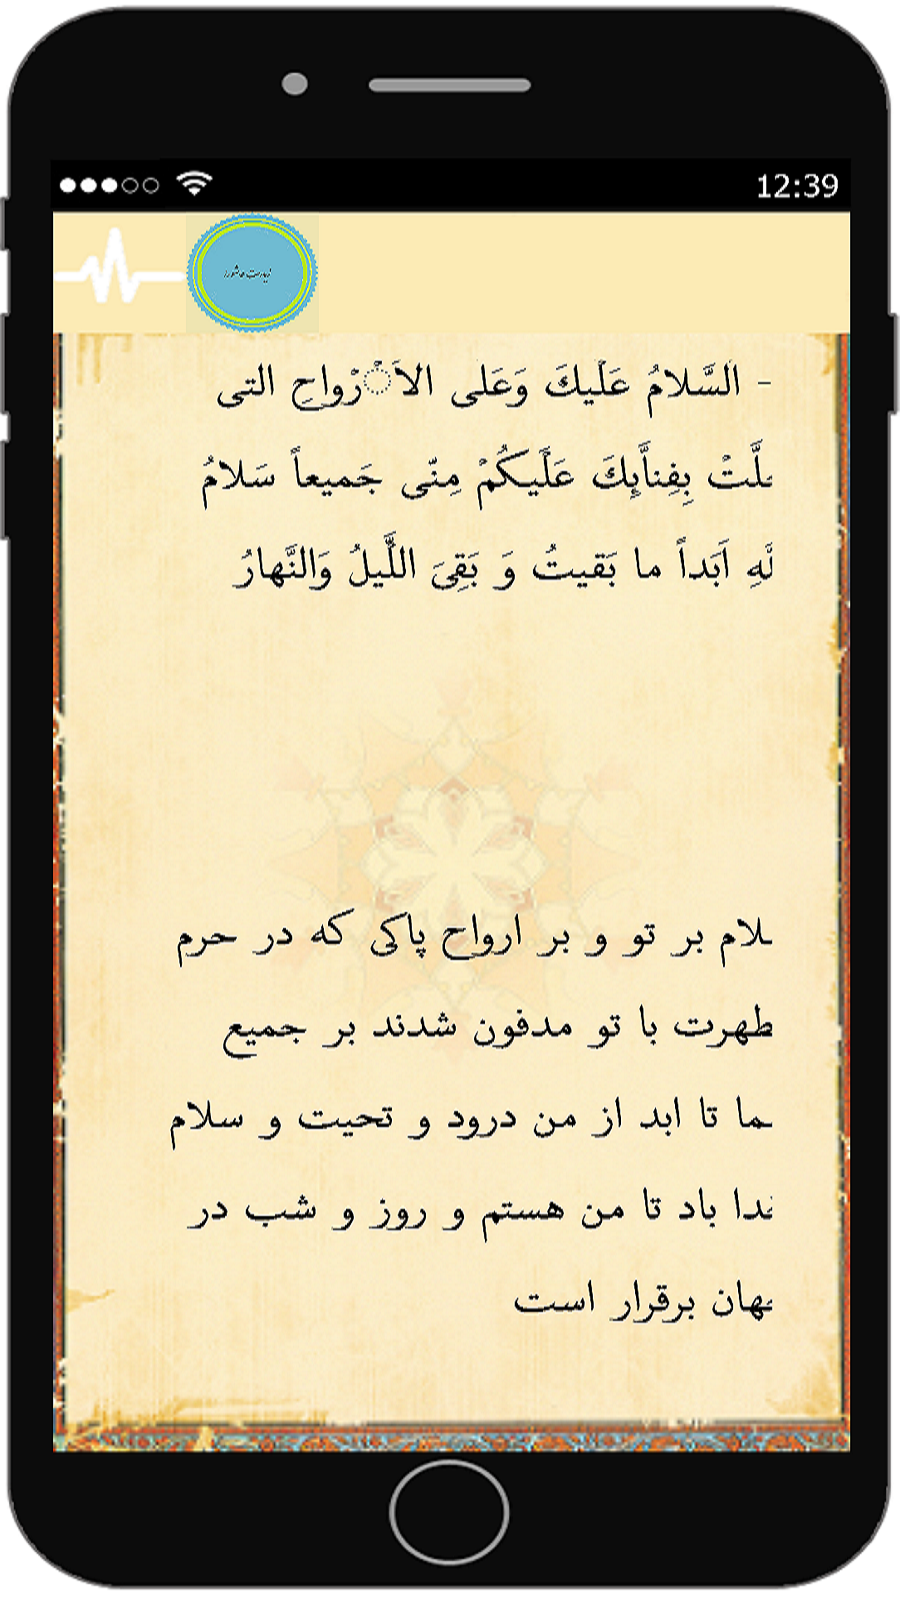 12:39
زیارت عاشورا
- اَلسَّلامُ عَلَیكَ وَعَلَی الاَْرْواحِ التی
لَّتْ بِفِناَّئِكَ عَلَیكُمْ مِنّی جَمیعاً سَلامُ
لَّهِ اَبَداً ما بَقیتُ وَ بَقِیَ اللَّیلُ وَالنَّهارُ
لام بر تو و بر ارواح پاکی که در حرم
طهرت با تو مدفون شدند بر جمیع
ما تا ابد از من درود و تحیت و سلام
دا باد تا من هستم و روز و شب در
هان برقرار است